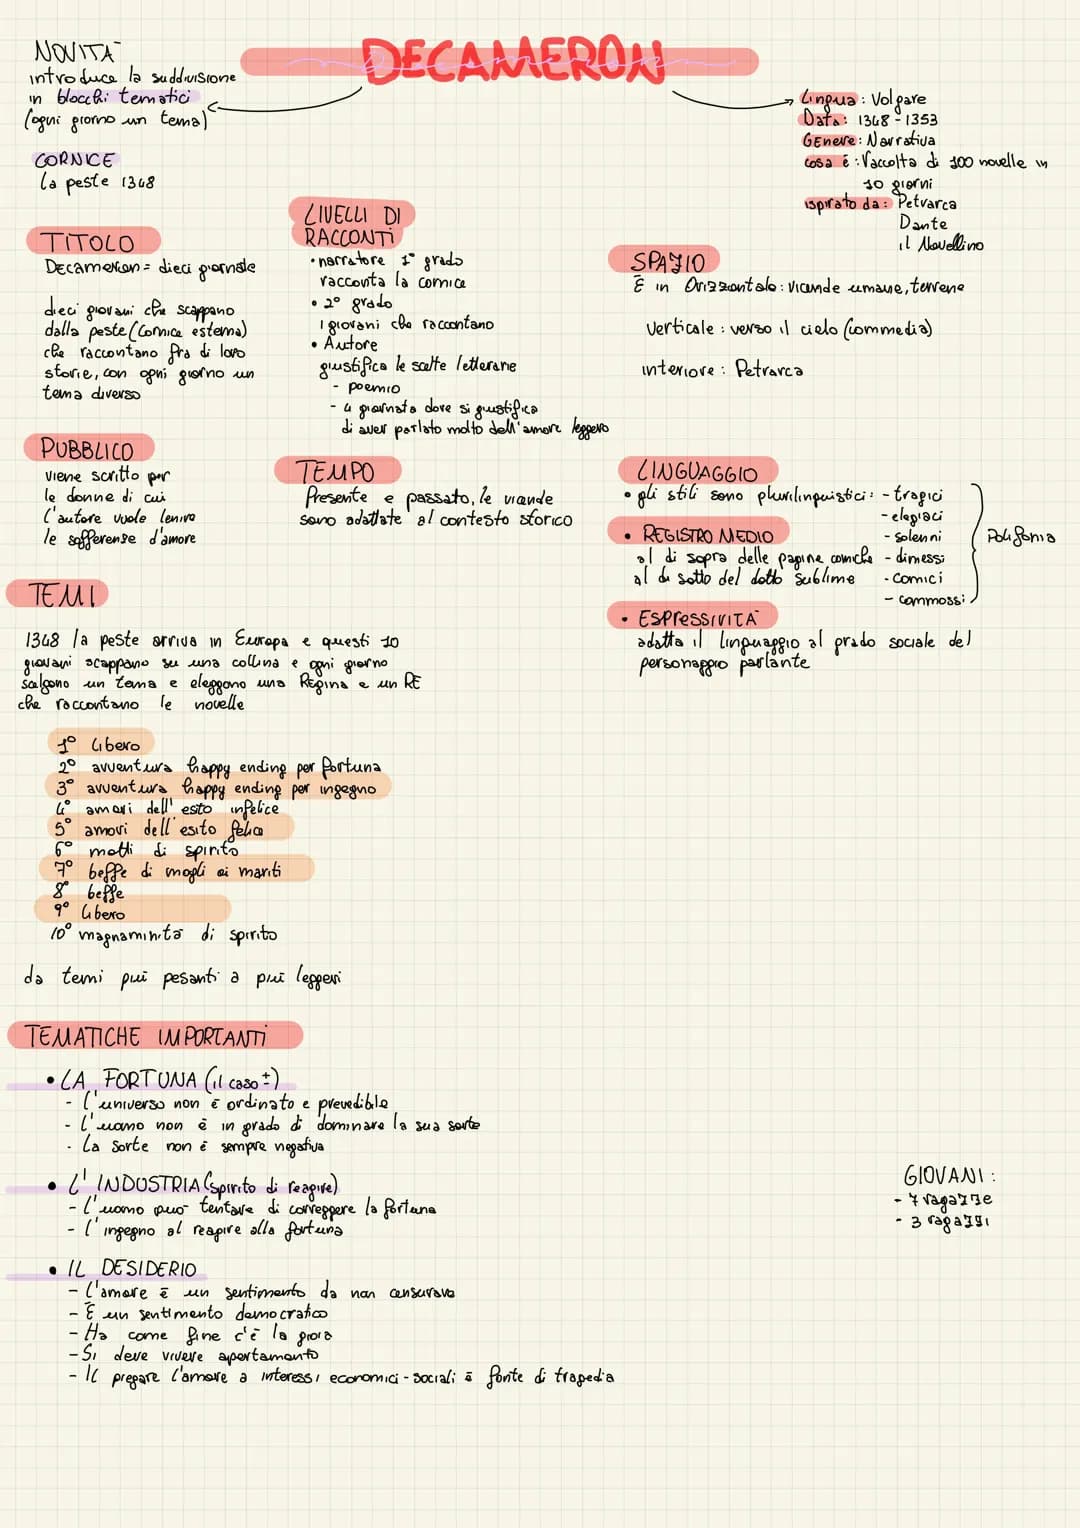 DECAMERON
NOVITÀ
introduce la suddivisione
in blocchi tematici
(ogni giorno un tema)
CORNICE
la peste 1348
Lingua: Volgare
Data: 1348-1353
Genere: Narrativa
cosa è: Raccolta di 100 novelle in
10 giorni
ispirato da: Petrarca
Dante
il Novellino
TITOLO
Decameron = dieci giornate
dieci giovani che scappano
dalla peste (cornice esterna)
che raccontano fra di loro
storie, con ogni giorno un
tema diverso
LIVELLI DI
RACCONTI
• narratore 1° grado
racconta la cornice
• 2° grado
i giovani che raccontano
• Autore
giustifica le scelte letterarie
- poemio
- 4 giornata dove si giustifica
di aver parlato molto dell'amore leggero
SPAZIO
È in Orizzontale: vicende umane, terrene
Verticale: verso il cielo (commedia)
interiore: Petrarca
PUBBLICO
viene scritto per
le donne di cui
l'autore vuole lenire
le sofferenze d'amore
TEMPO
Presente e passato, le vicende
sono adattate al contesto storico
LINGUAGGIO
• gli stili sono plurilinguistici: - tragici
- elegiaci
- solenni
- dimessi
- comici
- commossi
Polifonia
• REGISTRO MEDIO
al di sopra delle pagine comiche
al di sotto del dotto sublime
• ESPRESSIVITÀ
adatta il linguaggio al grado sociale del
personaggio parlante
TEMI
1348 la peste arriva in Europa e questi 10
giovani scappano su una collina e ogni giorno
scelgono un tema e eleggono una Regina e un RE
che raccontano le novelle
1° libero
2° avventura happy ending per fortuna
3° avventura happy ending per ingegno
4° amori dell'esito infelice
5° amori dell'esito felice
6° motti di spirito
7° beffe di mogli ai mariti
8° beffe
9° libero
10° magnaminità di spirito
da temi più pesanti a più leggeri
TEMATICHE IMPORTANTI
• LA FORTUNA (il caso ±)
- l'universo non è ordinato e prevedibile
- l'uomo non è in grado di dominare la sua sorte
- La sorte non è sempre negativa
• L'INDUSTRIA (spirito di reagire)
- l'uomo può tentare di correggere la fortuna
- l'ingegno al reagire alla fortuna
• IL DESIDERIO
- l'amore è un sentimento da non censurare
- È un sentimento democratico
- Ha come fine c'è la gioia
- Si deve vivere apertamente
- Il piegare l'amore a interessi economici-sociali è fonte di tragedia
GIOVANI:
- 7 ragazze
- 3 ragazzi